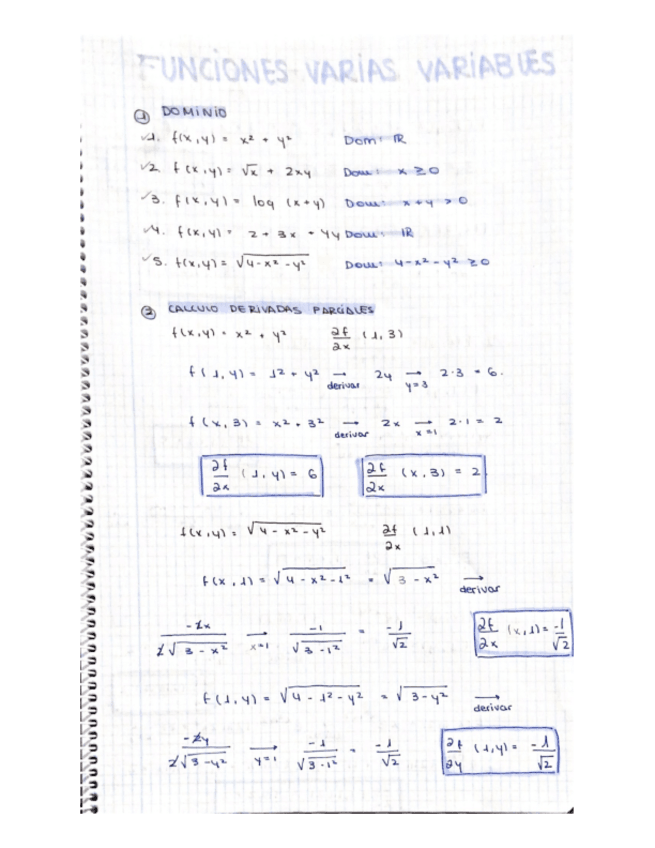 FUNCIONES VARIAS VARIABLES
① DOMINIO
✓1. f(x,y) = x² + y² Dom: ℝ
✓2. f(x,y) = √x + 2xy Dom: x ≥ 0
✓3. f(x,y) = log (x+y) Dom: x+y > 0
✓4. f(x,y) = 2 + 3x + 4y Dom: ℝ
✓5. f(x,y) = √(4-x²-y²) Dom: 4-x²-y² ≥ 0
② CALCULO DERIVADAS PARCIALES
f(x,y) = x² + y² ∂f/∂x (1,3)
f(1,y) = 1² + y² → derivar 2y → y=3 2·3 = 6.
f(x,3) = x² + 3² → derivar 2x → x=1 2·1 = 2
∂f/∂x (1,y) = 6 ∂f/∂x (x,3) = 2
f(x,y) = √(4-x²-y²) ∂f/∂x (1,1)
f(x,1) = √(4-x²-1²) = √(3-x²) → derivar
-2x/2√(3-x²) → x=1 -1/√(3-1²) = -1/√2 ∂f/∂x (x,1) = -1/√2
f(1,y) = √(4-1²-y²) = √(3-y²) → derivar
-2y/2√(3-y²) → y=1 -1/√(3-1²) = -1/√2 ∂f/∂y (1,y) = -1/√2